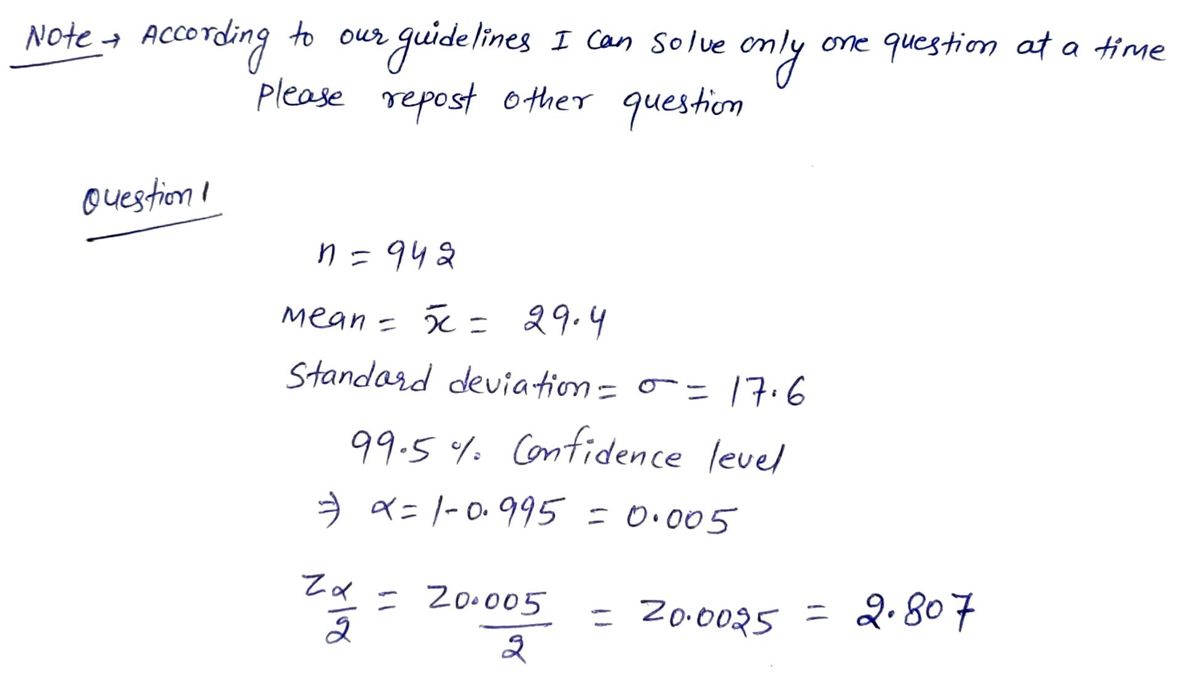 Note → According to our guidelines I can solve only one question at a time
Please repost other question
Question 1
n = 942
Mean = x̄ = 29.4
Standard deviation = σ = 17.6
99.5 % Confidence level
⇒ α = 1-0.995 = 0.005
Zα/2 = Z0.005/2 = Z0.0025 = 2.807